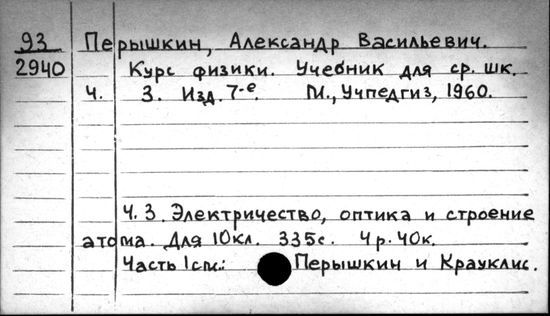 93 Перышкин, Александр Васильевич.
2940 Курс физики. Учебник для ср. шк.
Ч. 3. Изд. 7-е. М., Учпедгиз, 1960.
Ч. 3. Электричество, оптика и строение
атома. Для 10 кл. 335с. 4р. 40к.
Часть 1 см.: Перышкин и Крауклис.